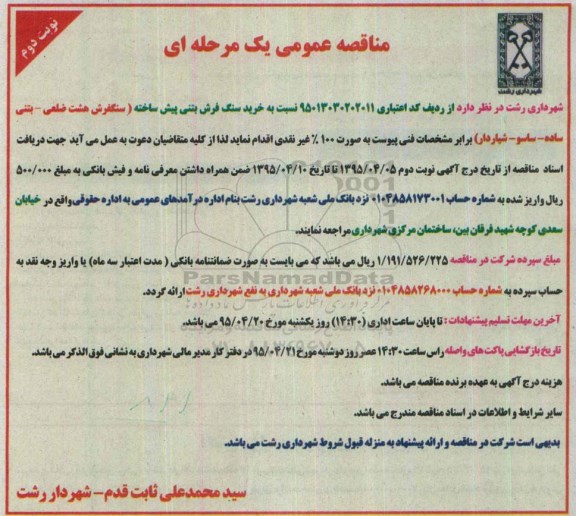 نوبت دوم
شهرداری رشت
مناقصه عمومی یک مرحله ای
شهرداری رشت در نظر دارد از ردیف کد اعتباری ۹۵۰۱۳۰۳۰۲۰۲۰۱۱ نسبت به خرید سنگ فرش بتنی پیش ساخته ( سنگفرش هشت ضلعی - بتنی
ساده - ساسو - شیاردار) برابر مشخصات فنی پیوست به صورت ۱۰۰ ٪ غیر نقدی اقدام نماید لذا از کلیه متقاضیان دعوت به عمل می آید جهت دریافت
اسناد مناقصه از تاریخ درج آگهی نوبت دوم ۱۳۹۵/۰۴/۰۵ تا تاریخ ۱۳۹۵/۰۴/۱۰ ضمن همراه داشتن معرفی نامه و فیش بانکی به مبلغ ۵۰۰/۰۰۰
ریال واریز شده به شماره حساب ۰۱۰۴۸۵۸۱۷۳۰۰۱ نزد بانک ملی شعبه شهرداری رشت بنام اداره درآمدهای عمومی به اداره حقوقی واقع در خیابان
سعدی کوچه شهید فرقان بین، ساختمان مرکزی شهرداری مراجعه نمایند.
مبلغ سپرده شرکت در مناقصه ۱/۱۹۱/۵۲۶/۲۲۵ ریال می باشد که می بایست به صورت ضمانتنامه بانکی ( مدت اعتبار سه ماه) یا واریز وجه نقد به
ParsNamadData
حساب سپرده به شماره حساب ۰۱۰۴۸۵۸۲۶۸۰۰۰ نزد بانک ملی شعبه شهرداری به نفع شهرداری رشت ارائه گردد.
آخرین مهلت تسلیم پیشنهادات : تا پایان ساعت اداری (۱۴:۳۰) روز یکشنبه مورخ ۹۵/۰۴/۲۰ می باشد.
تاریخ بازگشایی پاکت های واصله راس ساعت ۱۴:۳۰ عصر روز دوشنبه مورخ ۹۵/۰۴/۲۱ در دفتر کار مدیر مالی شهرداری به نشانی فوق الذکر می باشد.
هزینه درج آگهی به عهده برنده مناقصه می باشد.
سایر شرایط و اطلاعات در اسناد مناقصه مندرج می باشد.
بدیهی است شرکت در مناقصه و ارائه پیشنهاد به منزله قبول شروط شهرداری رشت می باشد.
سید محمدعلی ثابت قدم - شهردار رشت